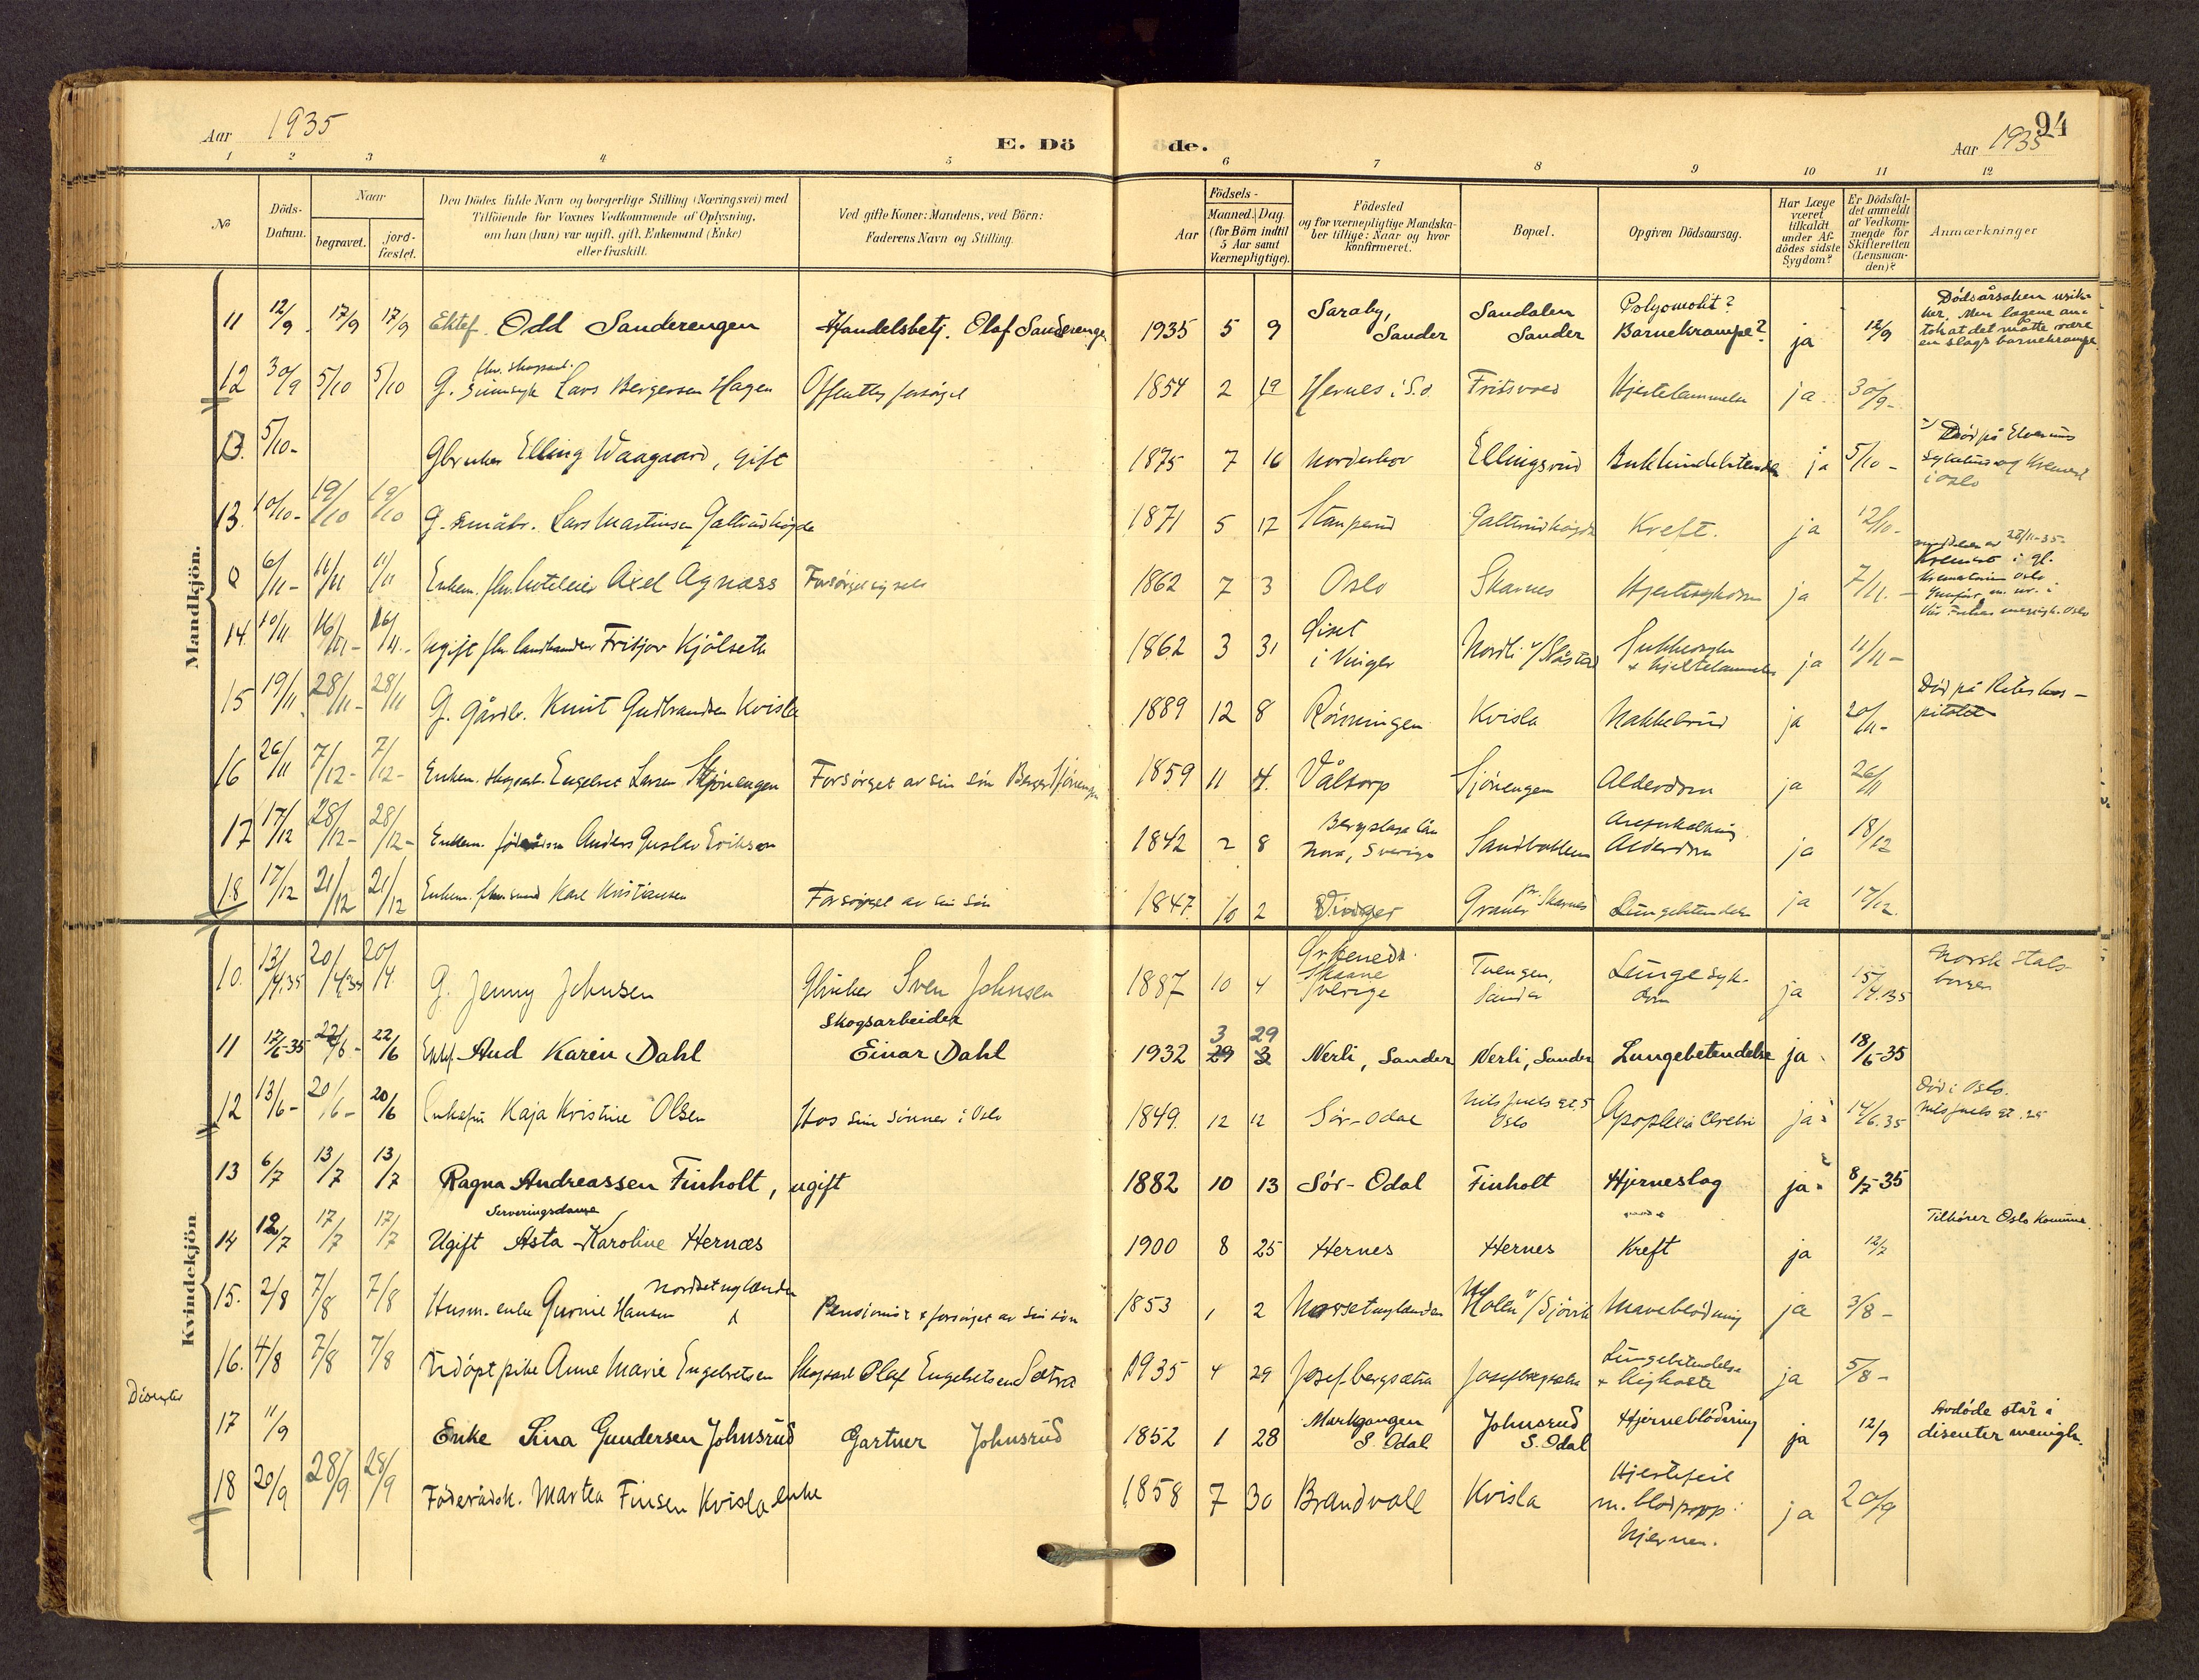 Aar 1935
E. Dö
de.
94
Aar 1935
1 2 3 4 5 6 7 8 9 10 11 12
No
Döds-Datum.
Naar
begravet.
jord-fæstet.
Den Dödes fulde Navn og borgerlige Stilling (Næringsvei) med
Tilföiende for Voxnes Vedkommende af Oplysning,
om han (hun) var ugift, gift, Enkemand (Enke)
eller fraskilt.
Ved gifte Koner: Mandens, ved Börn:
Faderens Navn og Stilling.
Aar
Födsels-
Maaned. Dag.
(for Börn indtil
5 Aar samt
Værnepligtige).
Födested
og for værnepligtige Mandska-
ber tillige: Naar og hvor
konfirmeret.
Bopæl.
Opgiven Dödsaarsag.
Har Læge
været
tilkaldt
under Af-
dödes sidste
Sygdom?
Er Dödsfal-
det anmeldt
af Vedkom-
mende for
Skifteretten
(Lensman-
den)?
Anmærkninger
Mandkjön.
11 12/9 17/9 17/9 Ektef. Odd Sanderengen Handelsbetj. Olaf Sanderengen 1935 5 9 Saraby, Sander Sandalen Sander Polyomolit? Barnekrampe? ja 12/9 Dödsårsaken usik-
ker. Men lægene an-
tok at det måtte være
en slags barnekrampe.
12 30/9 5/10 5/10 G. fhv. skogsarb. Lars Bergersen Hagen Offentlig forsörget 1854 2 19 Hernes i S.O. Fritsvold Hjertelammelse ja 30/9-
13. 5/10- Gbruker Elling Waagaard, gift 1875 7 16 Norderhov Ellingsrud Bukhindebetendelse ja 5/10- Död på Elverums
sykehus og kremert
i Oslo
13. 10/10- 19/10 19/10 G. småbr. Lars Martinsen Galtrudhögda 1871 5 17 Stanperud Galtrudhögda Kreft. ja 12/10-
6/11- 11/11 11/11 Enkem. fhv. hoteleier Axel Agnæss Forsörget sig selv 1862 7 3 Oslo Skarnes Hjertesykdom ja 7/11.- 23/11-35-
Kremert i gl.
Krematorium Oslo
14. 10/11 16/11- 16/11- Ugift fhv. landhandler Fritjov Kjölseth 1862 3 31 i Vinger Nordli v/Slåstad Sukkersyke + hjertelammelse ja 11/11-
15 19/11 28/11- 28/11 G. gårdbr. Knut Gudbrandsen Kvisla 1889 12 8 Rönningen Kvisla Nakkebrud ja 20/11- Död på Rikshos-
pitalet
16 26/11 7/12- 7/12- Enkem. skogsarb. Engebret Larsen Sjönengen Forsörget av sin sön Berger Sjönengen 1859 11 4. Våltorp Sjönengen Alderdom ja 26/11
17 17/12 28/12- 28/12- Enkem. föderådsm. Anders Gustav Erikson 1842 2 8 Bergslags län Nora, Sverige Sandbakken Areforkalkning Alderdom ja 18/12
18 17/12 21/12 21/12 Enkem. Karl Kristiansen Forsörget av sin sön 1847. 10 2 Vinger Graner pr. Skarnes Lungebetendelse ja 17/12.
Kvindekjön
10. 13/4.35 20/4.35 20/4. G. Jenny Johnsen Gbruker Sven Johnsen 1887 10 4 Örkened Skaane Sverige Tuengen, Sander Lungesyk-dom ja 15/4.35 Norsk stats-
borger
11 17/6-35 22/6- 22/6 Ektef. Aud Karin Dahl Skogsarbeider Einar Dahl 1932 3 29 Nerli, Sander Nerli, Sander Lungebetendelse ja 18/6-35
12 13/6- 20/6- 20/6 Enkefru Kaja Kristine Olsen Hos sine sönner i Oslo 1849. 12 12 Sör-Odal Nils Juels gt. 5 Oslo Apoplexia cerebri ja 14/6.35 Död i Oslo.
Nils Juels gt. 25
13 6/7 13/7 13/7 Ragna Andreassen Finholt, ugift 1882 10 13 Sör-Odal Finholt Hjerneslag ja 8/7-35
14 12/7 17/7 17/7 Ugift Serveringsdame Asta Karoline Hernæs 1900 8 25 Hernes Hernes Kreft ja 12/7 Tilhörer Oslo Komune.
15. 2/8 7/8 7/8 Husm. enke Gurine Hansen Nordsetuglenden Pensionist + forsörget av sin sön 1853 1 2 Norsetuglenden Holen v/Sjövik Maveblödning ja 3/8-
16. 4/8 7/8 7/8 Udöpt pike Anne Marie Engebretsen Skogsarb Olaf Engebretsen Sætra 1935 4 29 Josefbergsætra Josefbergsætra Lungebetendelse + kighoste ja 5/8-
Disenter
17 11/9 Enke Lina Gundersen Johnsrud Gartner Johnsrud 1852 1 28 Markgangen S. Odal Johnsrud S. Odal Hjerneblödning ja 12/9 Avdöde står i
disenter menigh.
18 20/9 28/9 28/9 Föderådsk. Martea Finsen Kvisla enke 1858 7 30 Brandvall Kvisla Hjertefeil m. blodpropp i hjernen. ja 20/9